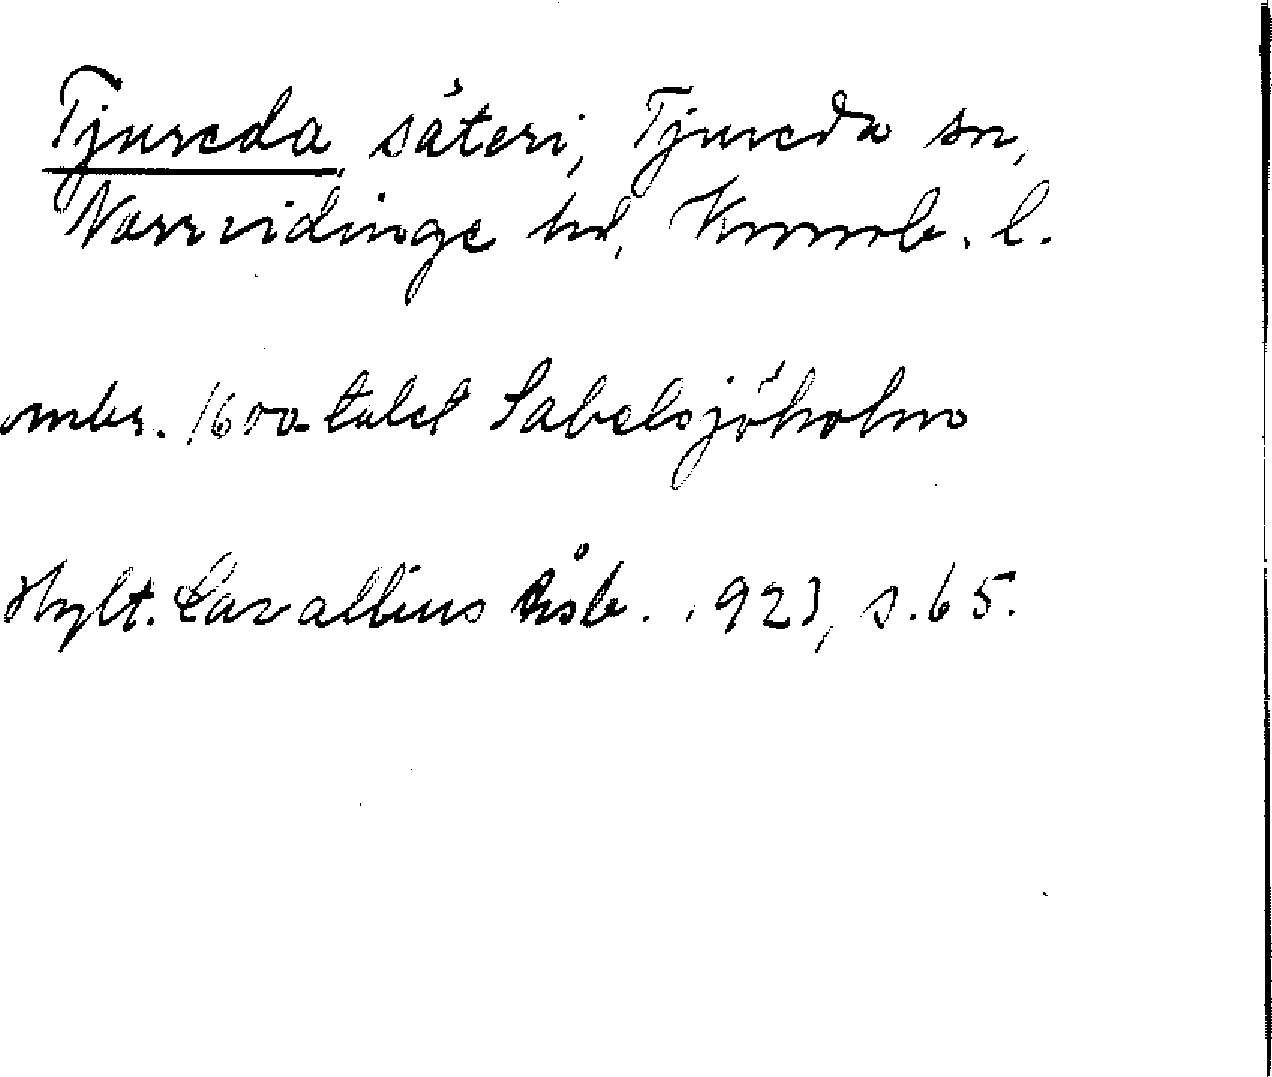 Tjureda säteri, Tjureda sn,
Norrvidinge hd, Kronob. l.
ombr. 1600-talet Sabelsjöholm
Hylt. Cavallius Årsb. 1923, s. 65.